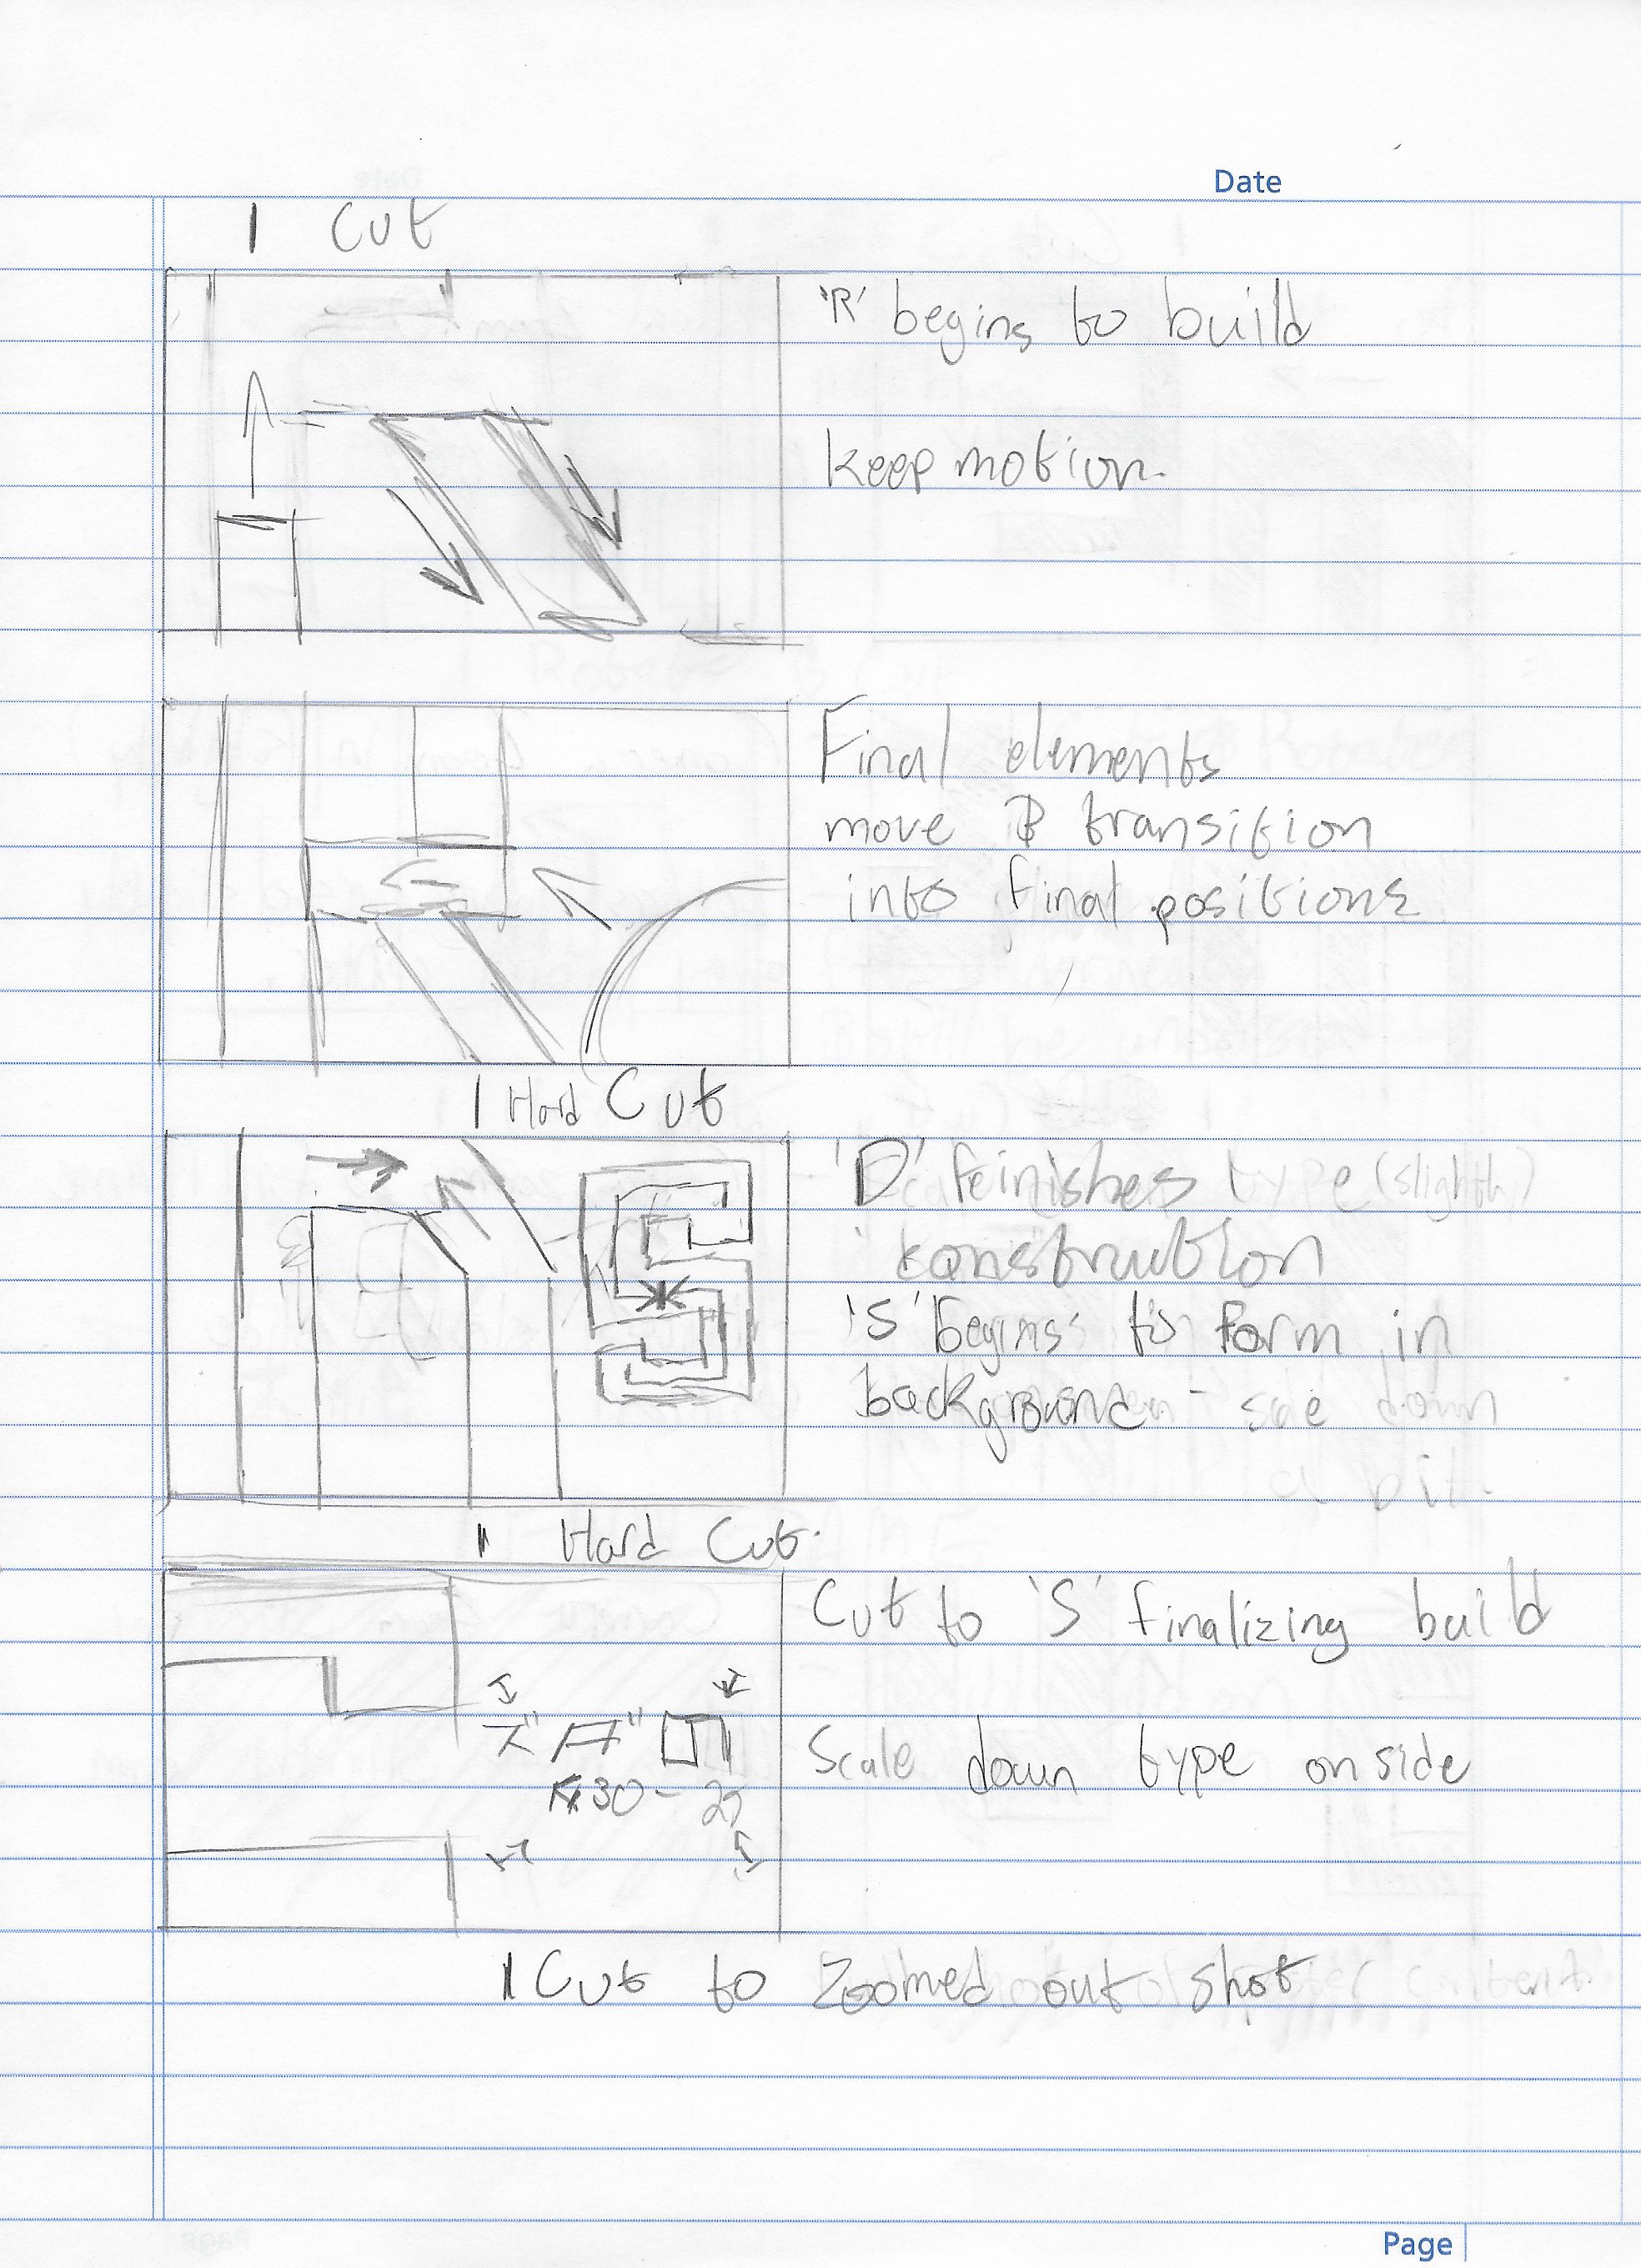 Date
1 Cut
'R' begins to build
keep motion.
Final elements
move & transition
into final positions
1 Hard Cut
'D' feinishes type (slight)
construction
'S' begins to form in
background - sale down
a bit.
1 Hard Cut.
Cut to 'S' finalizing build
Scale down type on side
1 Cut to Zoomed out shot
Page